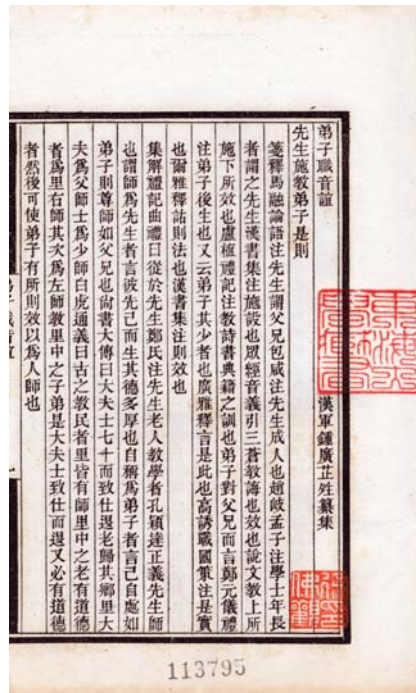 弟子職音誼
漢軍鍾廣芷姓纂集
先生施教弟子是則
箋釋馬融論語注先生謂父兄包咸注先生成人也趙岐孟子注學士年長
者謂之先生漢書集注施設也眾經音義引三蒼教誨也效也說文教上所
施下所效也盧植禮記注教詩書典籍之訓也弟子對父兄而言鄭元儀禮
注弟子後生也又云弟子其少者也廣雅釋言是此也高誘戰國策注是實
也爾雅釋詁則法也漢書集注則效也
集解禮記曲禮曰從於先生鄭氏注先生老人教學者孔穎達正義先生師
也謂師為先生者言彼先己而生其德多厚也自稱為弟子者言己自處如
弟子則尊師如父兄也尚書大傳曰大夫士七十而致仕還老歸其鄉里大
夫為父師士為少師白虎通義曰古之教民者里皆有師里中之老有道德
者為里右師其次為左師教里中之子弟是大夫士致仕而還又必有道德
者然後可使弟子有所則效以為人師也
弟子職音誼
113795